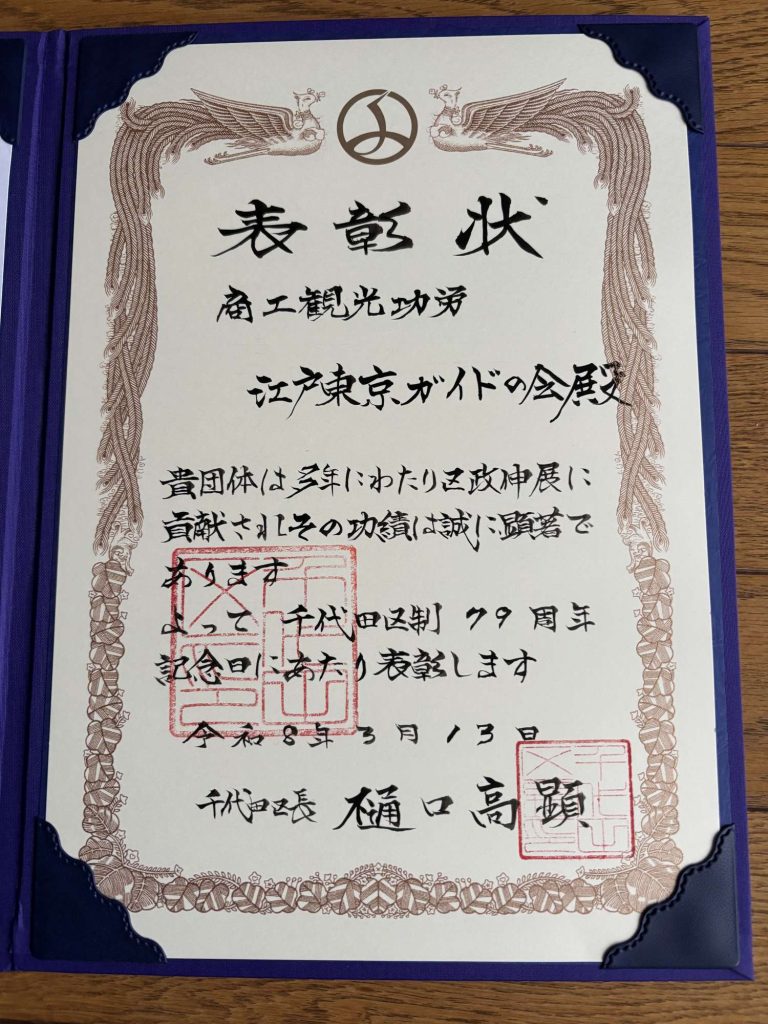 表彰状
商工観光功労
江戸東京ガイドの会殿
貴団体は多年にわたり区政伸展に
貢献されその功績は誠に顕著で
あります
よって 千代田区制 79 周年
記念日にあたり表彰します
令和8年3月13日
千代田区長 樋口高顕